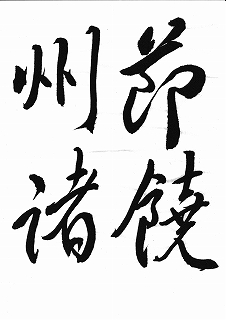 節饒
州諸